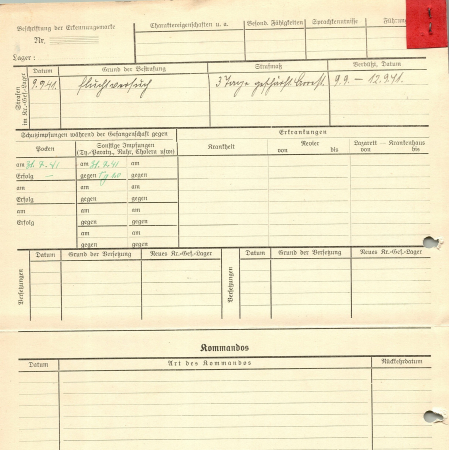 Beschriftung der Erkennungsmarke
Nr.
Charaktereigenschaften u. a.
Besond. Fähigkeiten
Sprachkenntnisse
Führung
Lager:
Strafen im Kr.-Gef.-Lager
Datum
Grund der Bestrafung
Strafmaß
Verbüßt, Datum
9.9.41.
Fluchtversuch
3 Tage geschärft. Arrest.
9.9. – 12.9.41.
Schutzimpfungen während der Gefangenschaft gegen
Erkrankungen
Pocken
Sonstige Impfungen
(Ty.-Paraty., Ruhr, Cholera usw.)
Krankheit
Revier
von bis
Lazarett — Krankenhaus
von bis
am 31.7.41 am 31.7.41 am
Erfolg – gegen gegen
am am am
Erfolg gegen gegen
am am am
Erfolg gegen gegen
am am
gegen gegen
am am
gegen gegen
Versetzungen
Datum
Grund der Versetzung
Neues Kr.-Gef.-Lager
Versetzungen
Datum
Grund der Versetzung
Neues Kr.-Gef.-Lager
Kommandos
Datum
Art des Kommandos
Rückkehrdatum